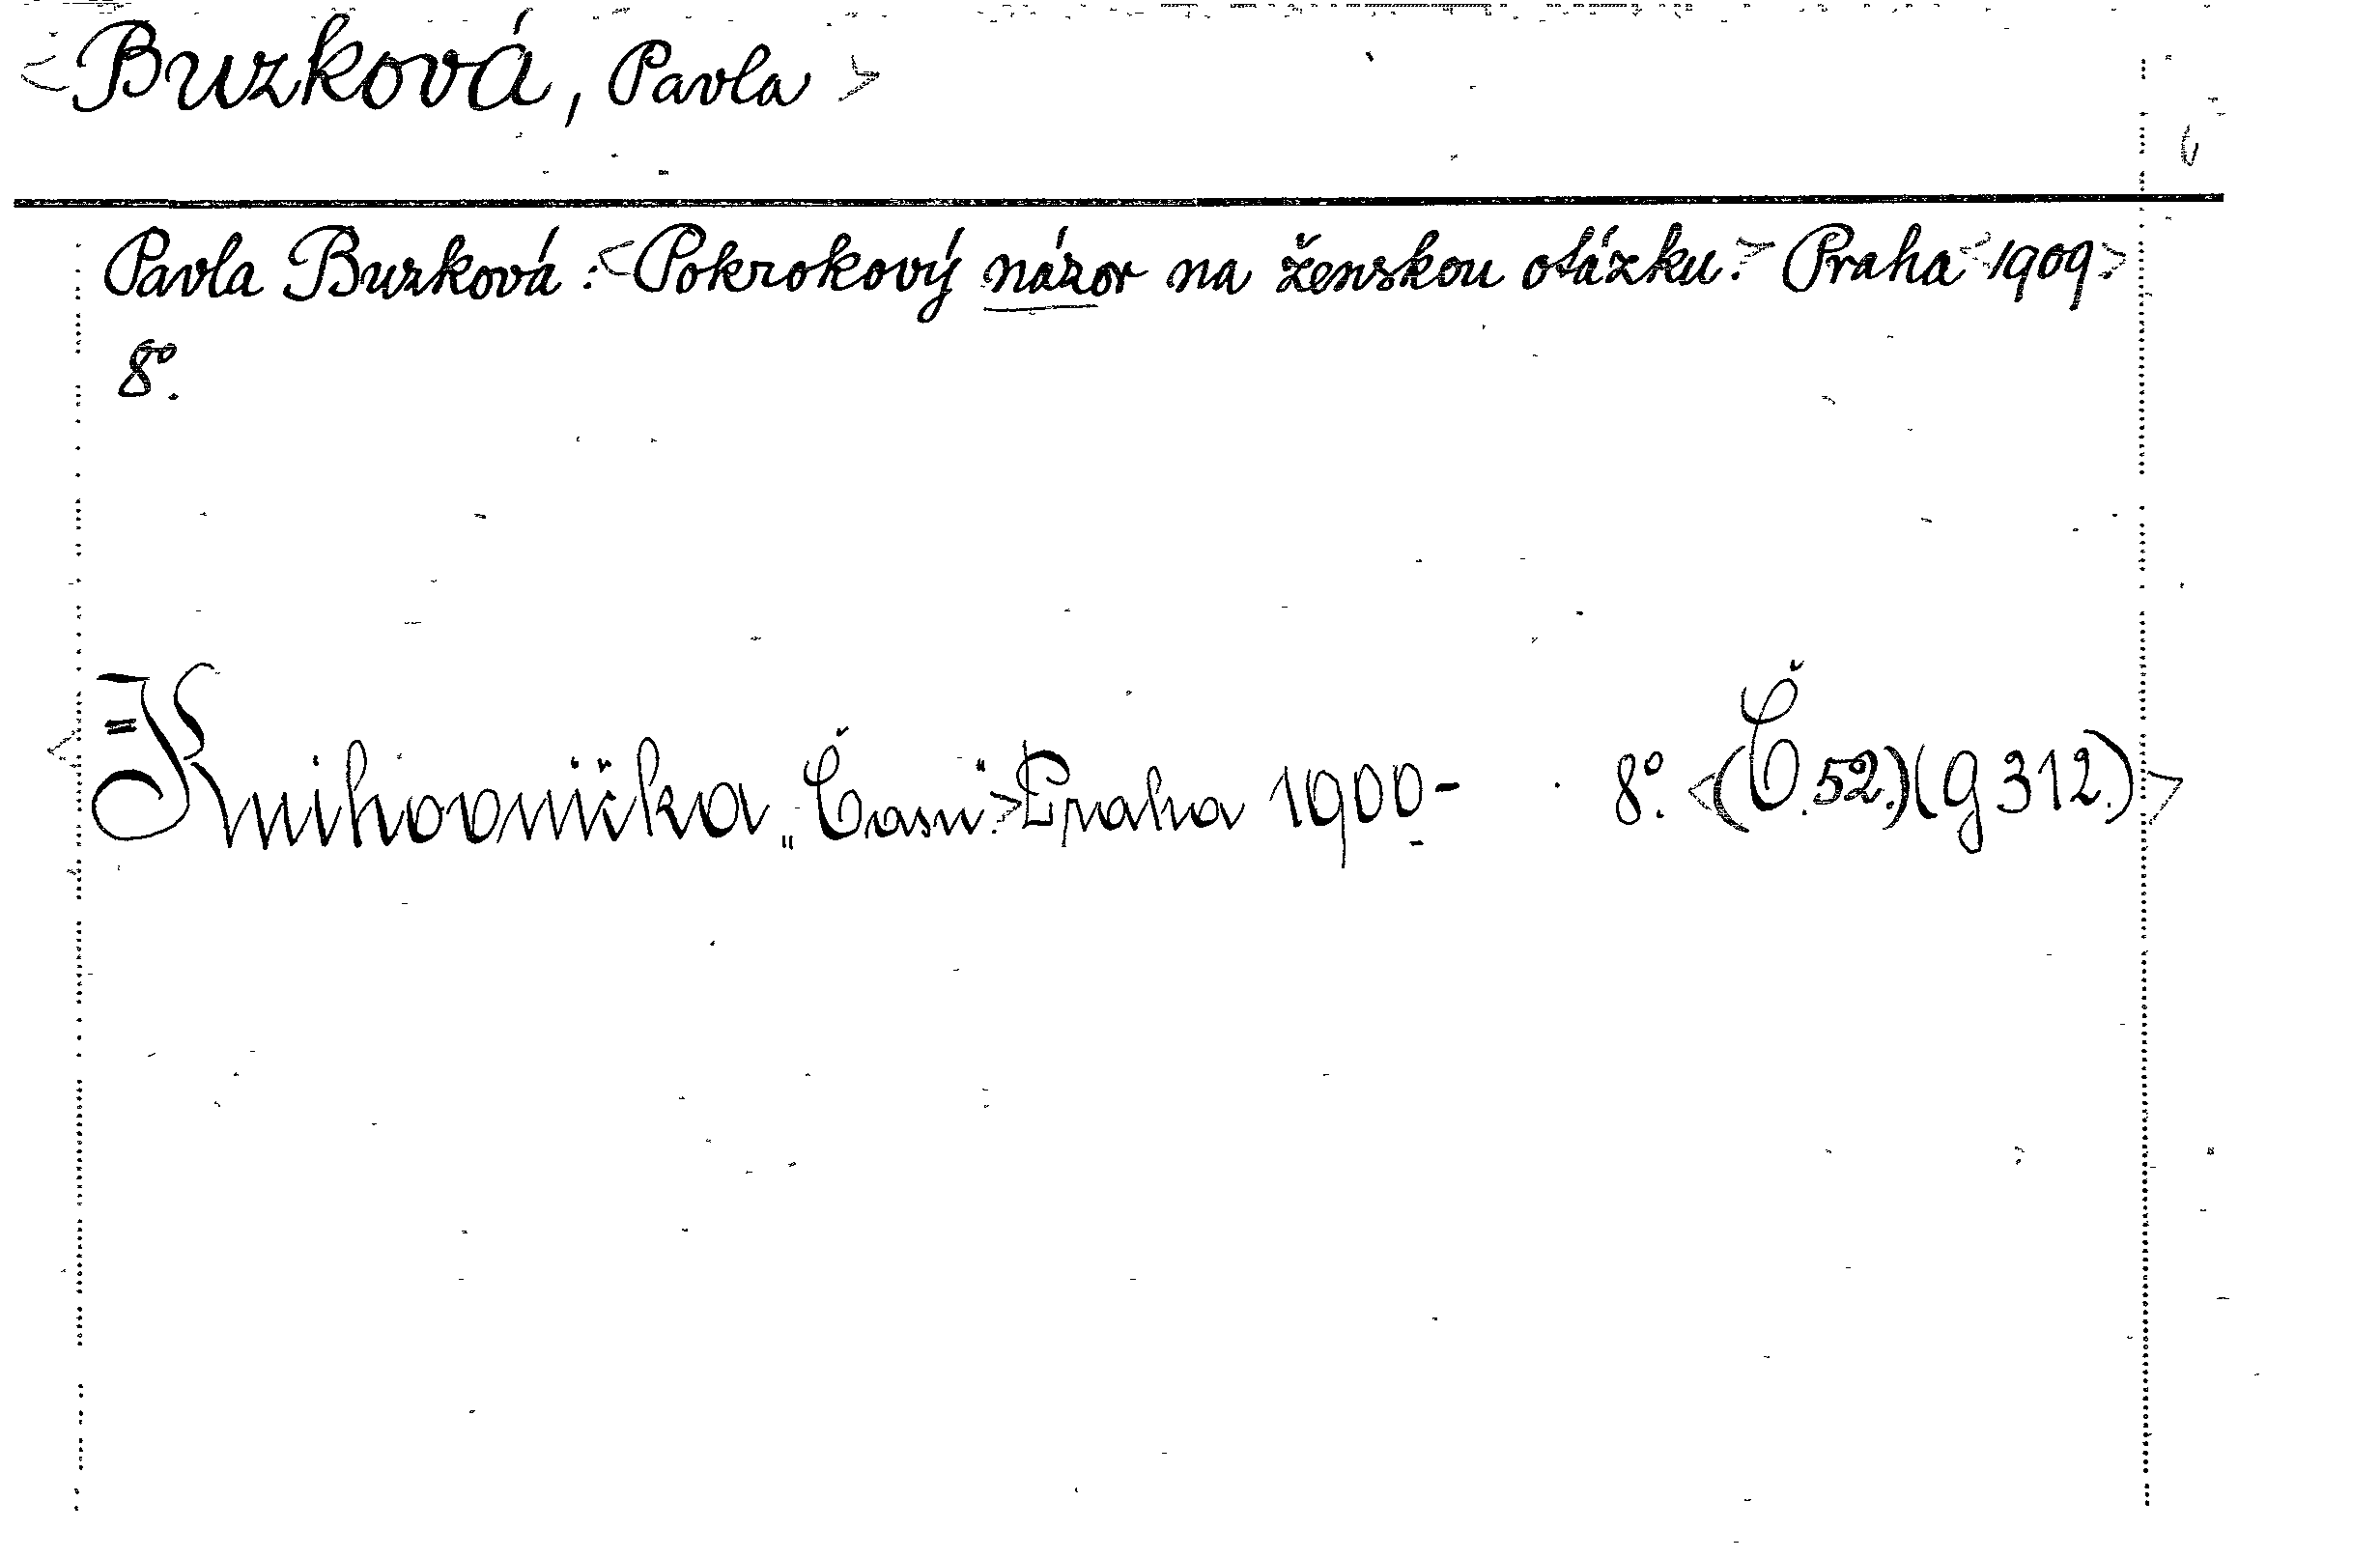 <Buzková, Pavla>
Pavla Buzková: <Pokrokový názor na ženskou otázku.> Praha <1909.>
8º.
<=Knihovnička „Času.“> Praha 1900- . 8º. <(Č.52.)(g 312.)>